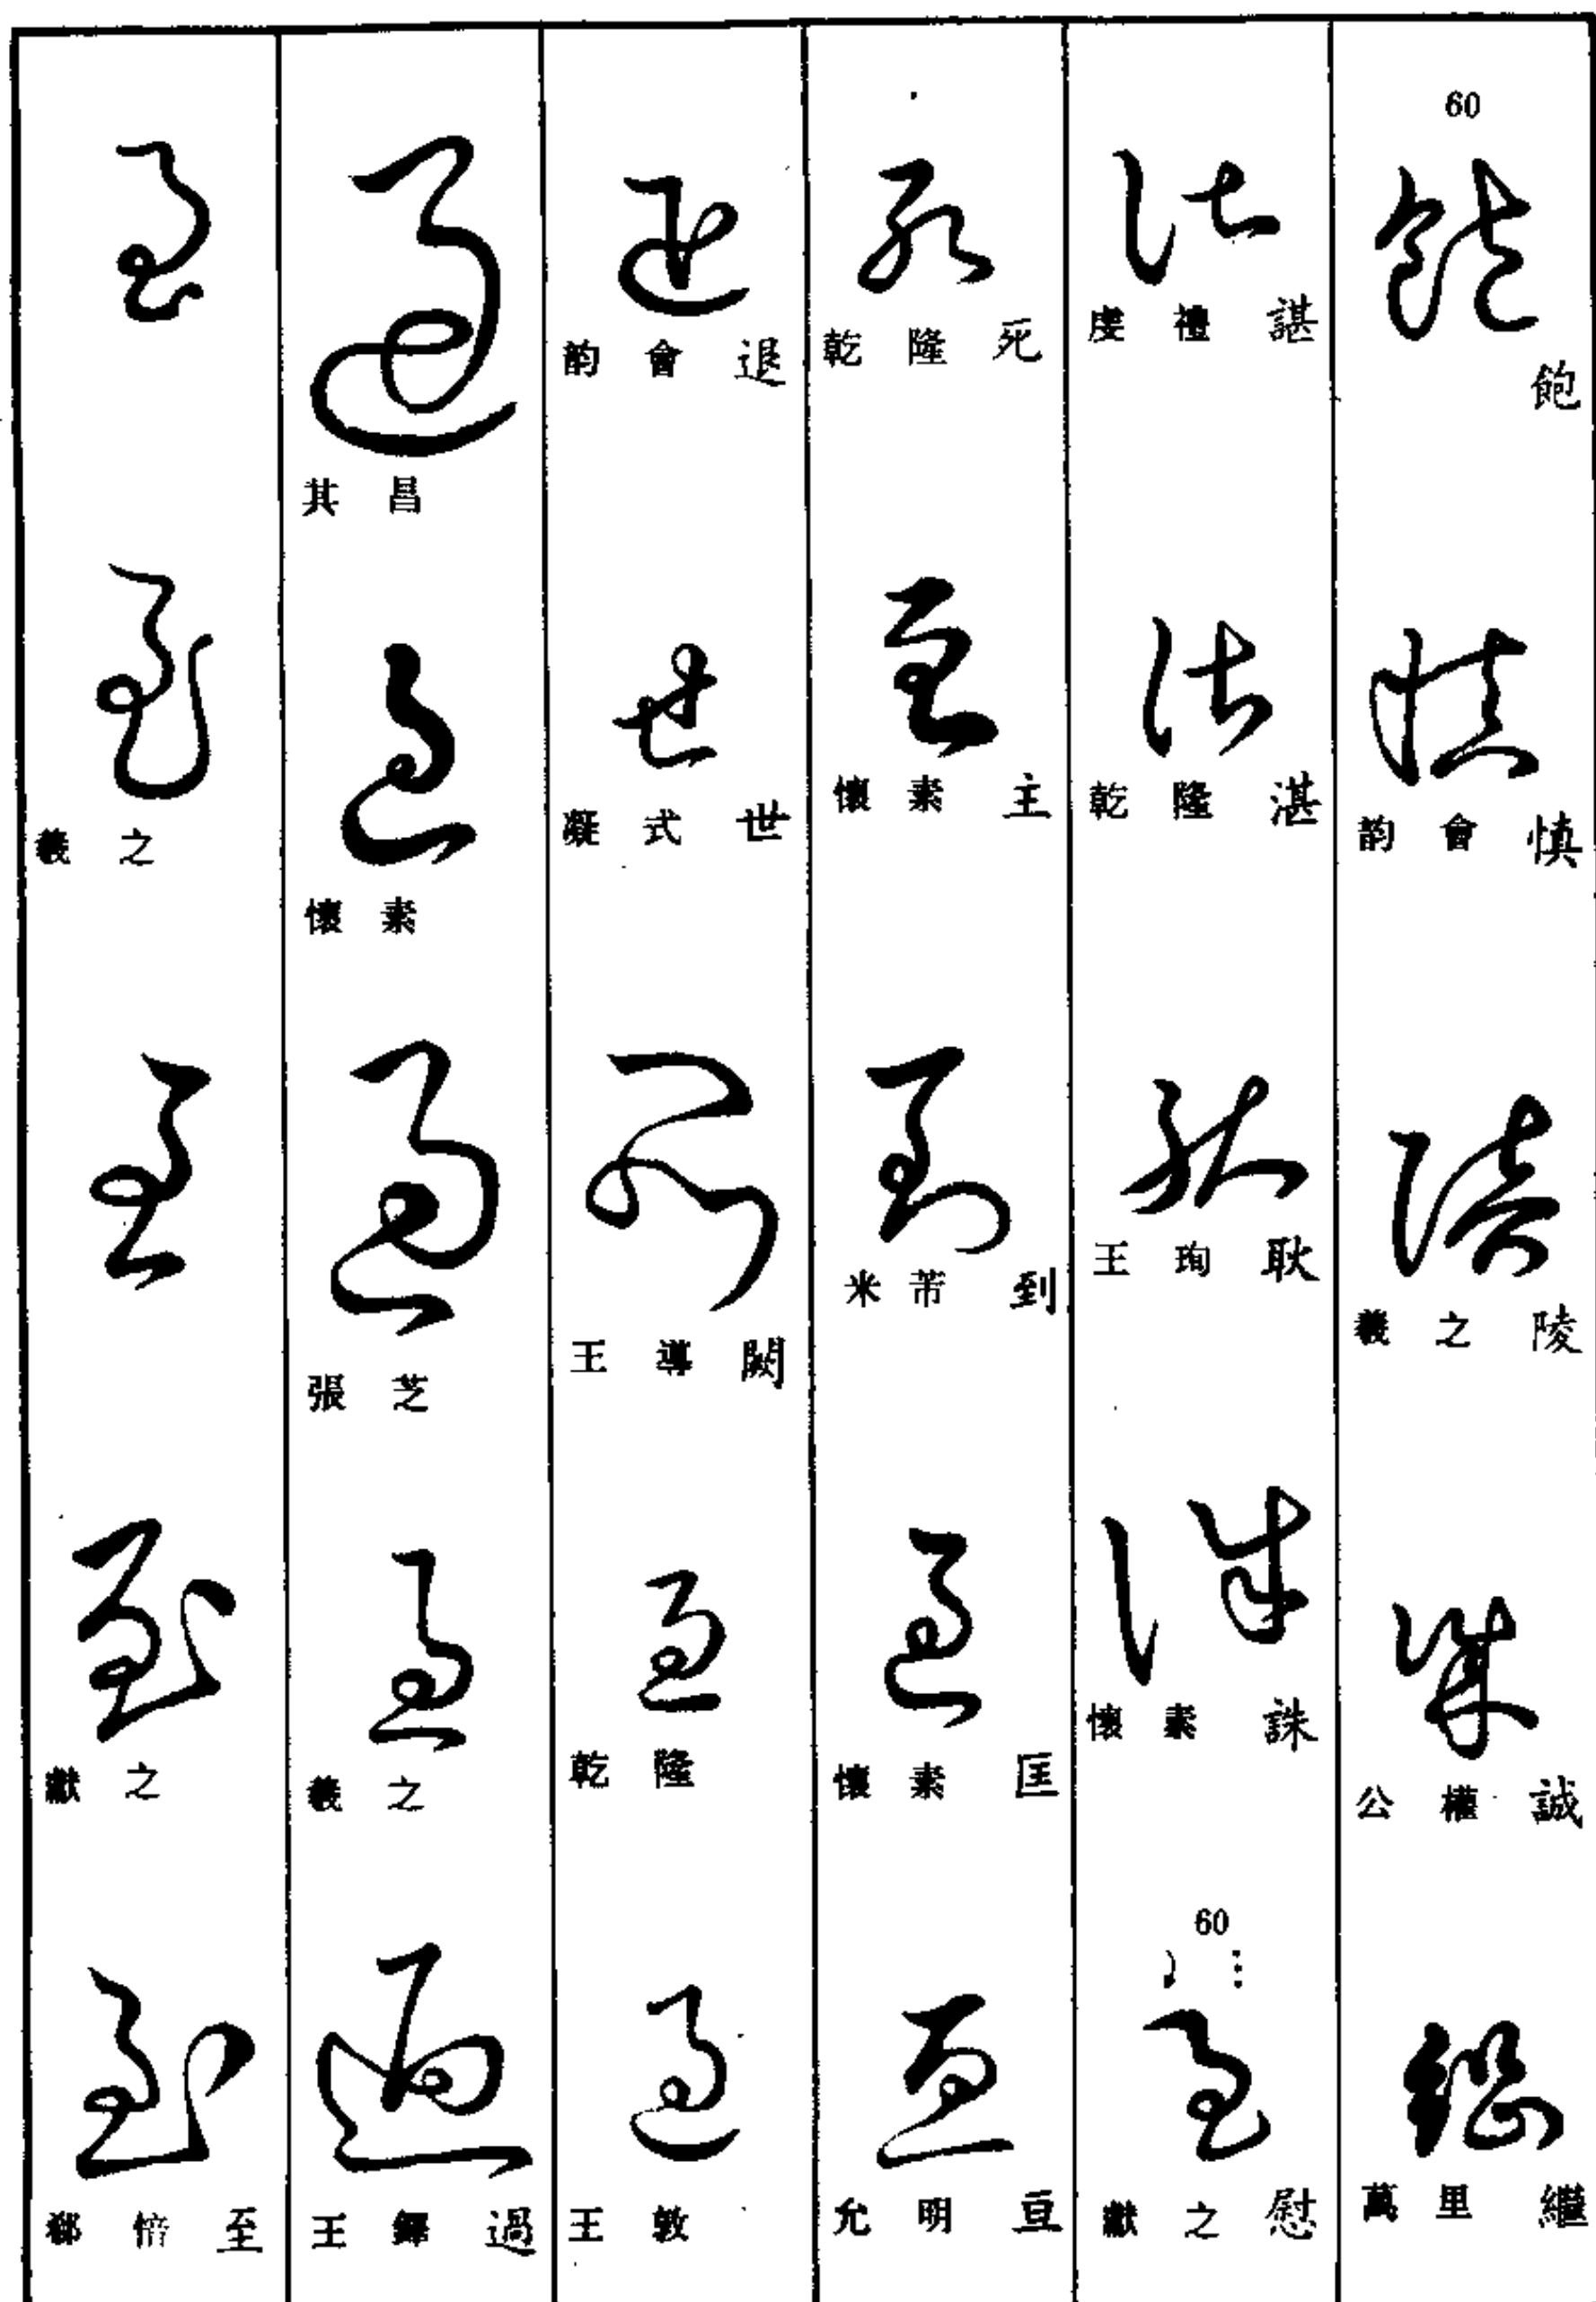 60
飽
韵會 慎
羲之 陵
公權 誠
萬里 繼
虔禮 諶
乾隆 湛
王珣 耿
懷素 誅
60
獻之 慰
乾隆 死
懷素 主
米芾 到
懷素 匡
允明 亘
韵會 退
凝式 世
王導 闕
乾隆
王敦
其昌
懷素
張芝
羲之
王鐸 過
羲之
獻之
郗愔 至